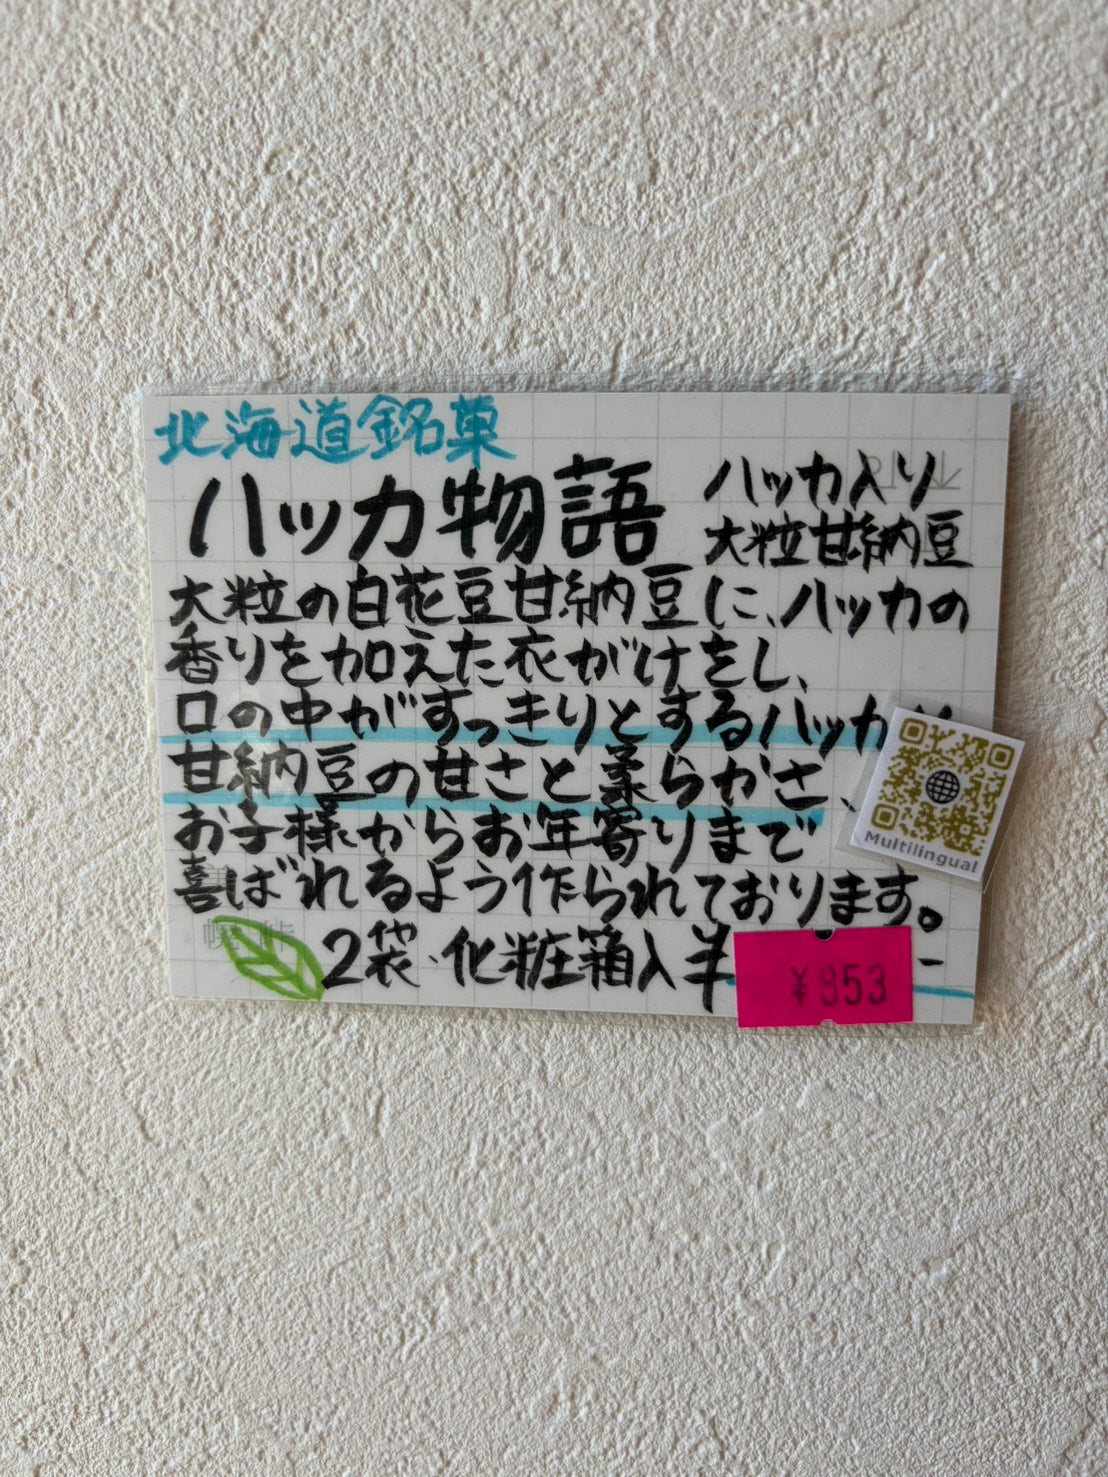 北海道銘菓
ハッカ物語
ハッカ入り
大粒甘納豆
大粒の白花豆甘納豆に、ハッカの
香りを加えた衣がけをし、
口の中がすっきりとするハッカ
甘納豆の甘さと柔らかさ、
お子様からお年寄りまで
喜ばれるよう作られております。
2袋・化粧箱入
¥853
Multilingual